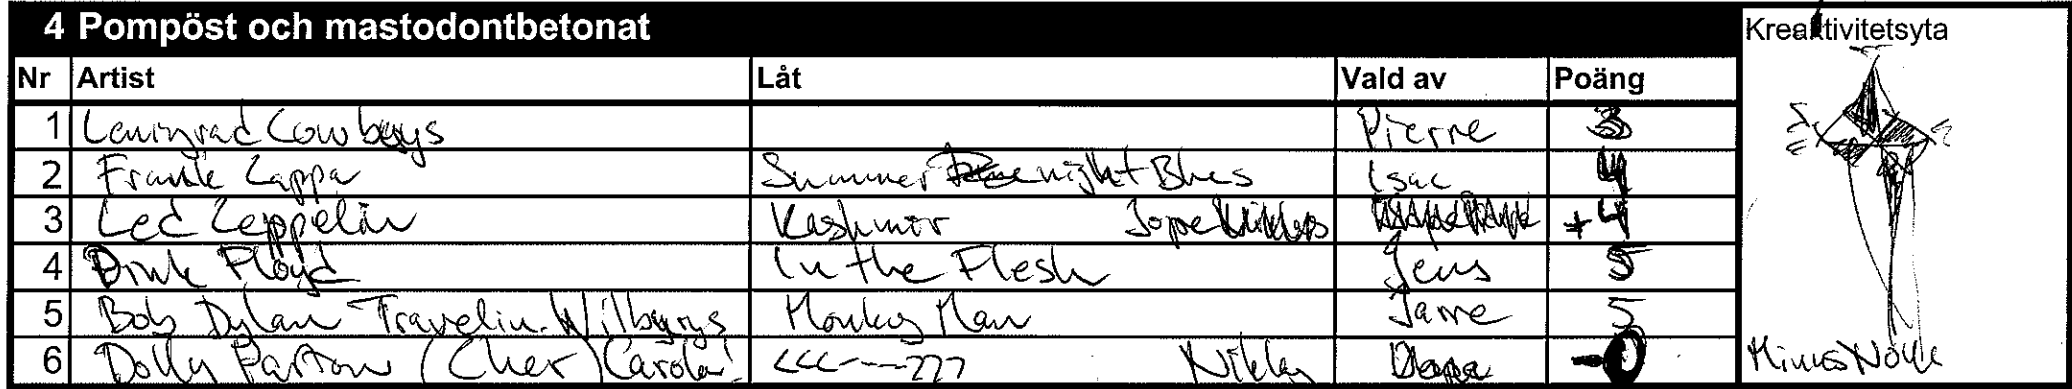 4 Pompöst och mastodontbetonat
Kreaktivitetsyta
Nr Artist Låt Vald av Poäng
1 Leningrad Cowboys Pierre 3
2 Frank Zappa Summer night Blues Isac 4
3 Led Zeppelin Kashmir Jope +4
4 Pink Floyd In the Flesh Jens 5
5 Bob Dylan Travelin. Wilburys Monkey Man Janne 5
6 Dolly Parton (Cher) Carola! <<<----??? Nikla -0
Minus